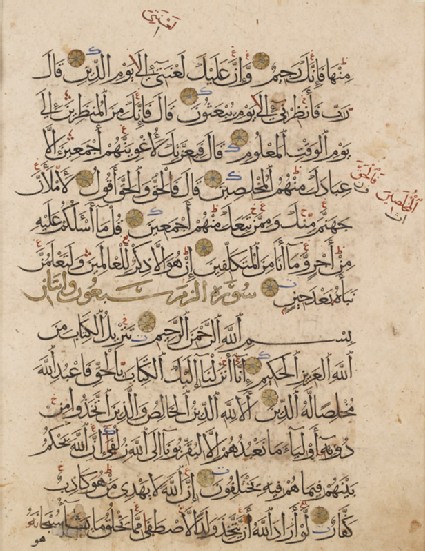 لعنتي
منها فإنك رجيم وإن عليك لعنتي إلى يوم الدين قال
رب فأنظرني إلى يوم يبعثون قال فإنك من المنظرين إلى
يوم الوقت المعلوم قال فبعزتك لأغوينهم أجمعين إلا
عبادك منهم المخلصين قال فالحق والحق أقول لأملأن
المخلصين فالحق
جهنم منك وممن تبعك منهم أجمعين قل ما أسألكم عليه
من أجر وما أنا من المتكلفين إن هو إلا ذكر للعالمين ولتعلمن
نبأه بعد حين سورة الزمر سبعون
بسم الله الرحمن الرحيم تنزيل الكتاب من
الله العزيز الحكيم إنا أنزلنا إليك الكتاب بالحق فاعبد الله
مخلصا له الدين ألا لله الدين الخالص والذين اتخذوا من
دونه أولياء ما نعبدهم إلا ليقربونا إلى الله زلفى إن الله يحكم
بينهم فيما هم فيه يختلفون إن الله لا يهدي من هو كاذب
كفار لو أراد الله أن يتخذ ولدا لاصطفى مما يخلق ما يشاء سبحانه
هو